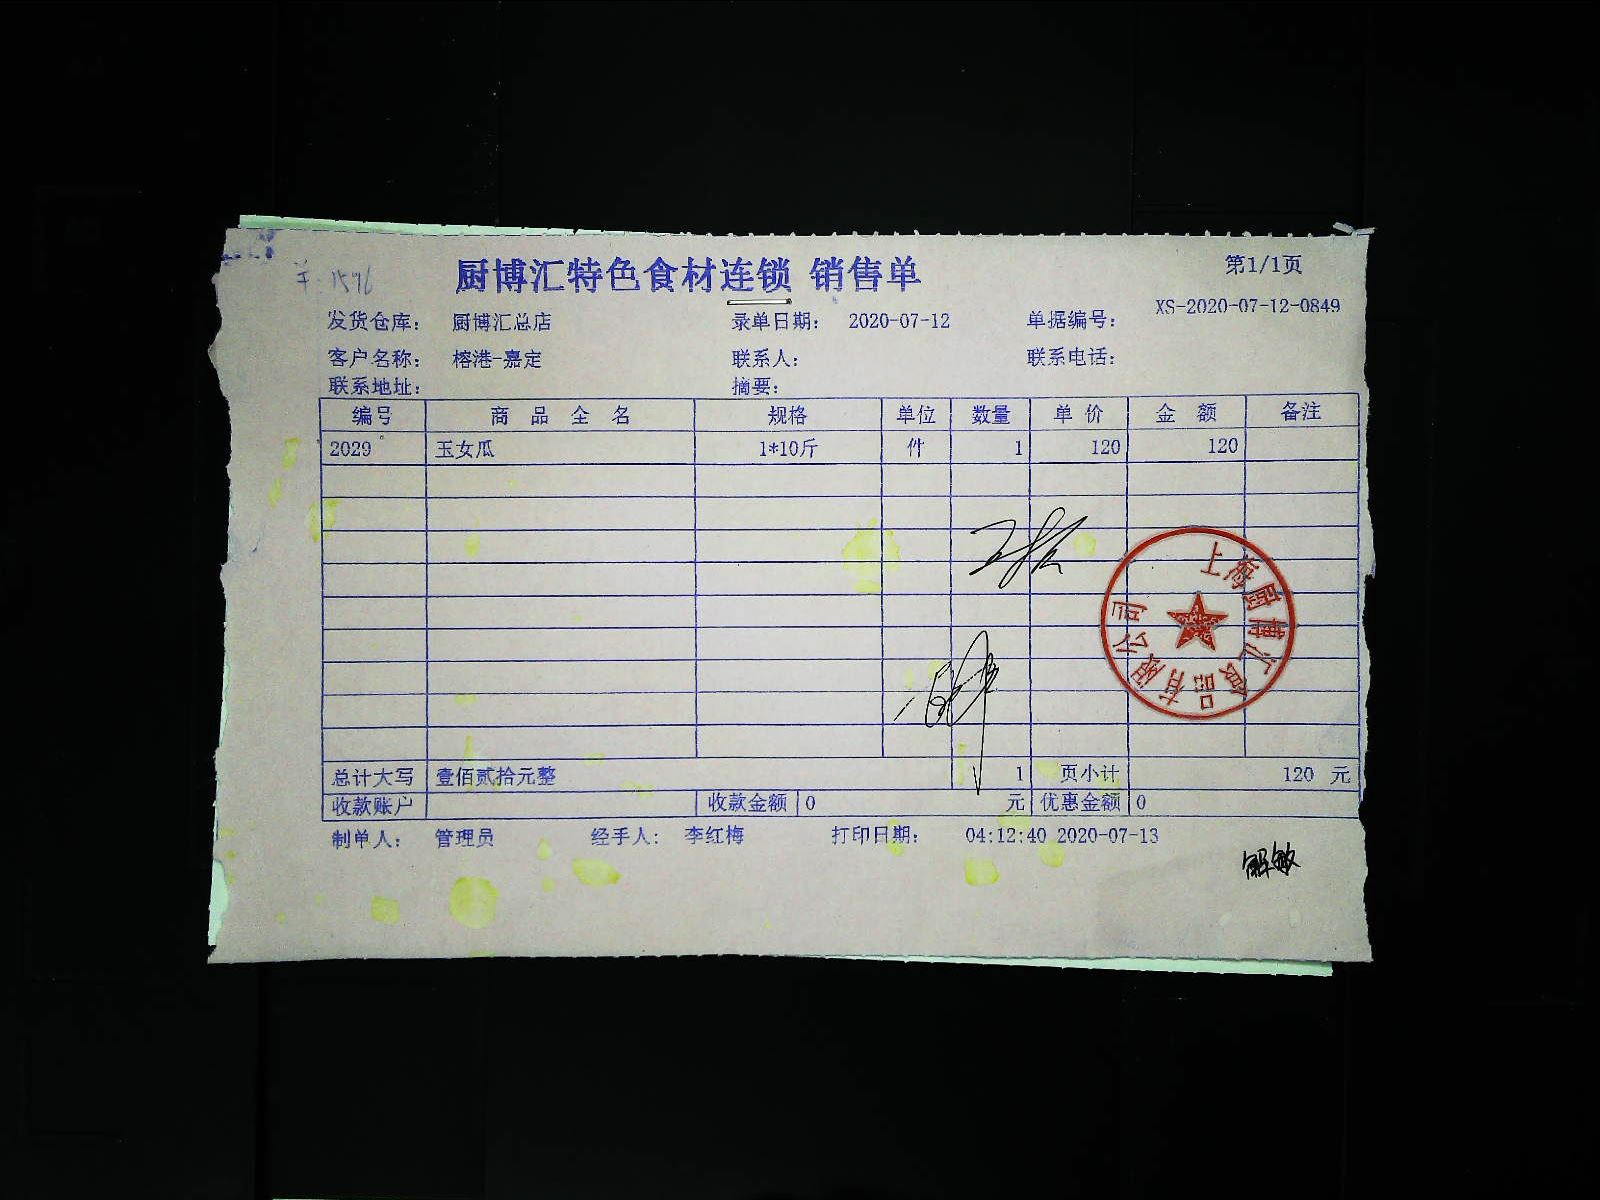 厨博汇特色食材连锁 销售单
第1/1页
发货仓库： 厨博汇总店 录单日期： 2020-07-12 单据编号： XS-2020-07-12-0849
客户名称： 榕港-嘉定 联系人： 联系电话：
联系地址： 摘要：
编号 商 品 全 名 规格 单位 数量 单 价 金 额 备注
2029 玉女瓜 1*10斤 件 1 120 120
上海厨博汇食品有限公司
总计大写 壹佰贰拾元整 1 页小计 120 元
收款账户 收款金额 0 元 优惠金额 0
制单人： 管理员 经手人： 李红梅 打印日期： 04:12:40 2020-07-13
解敏